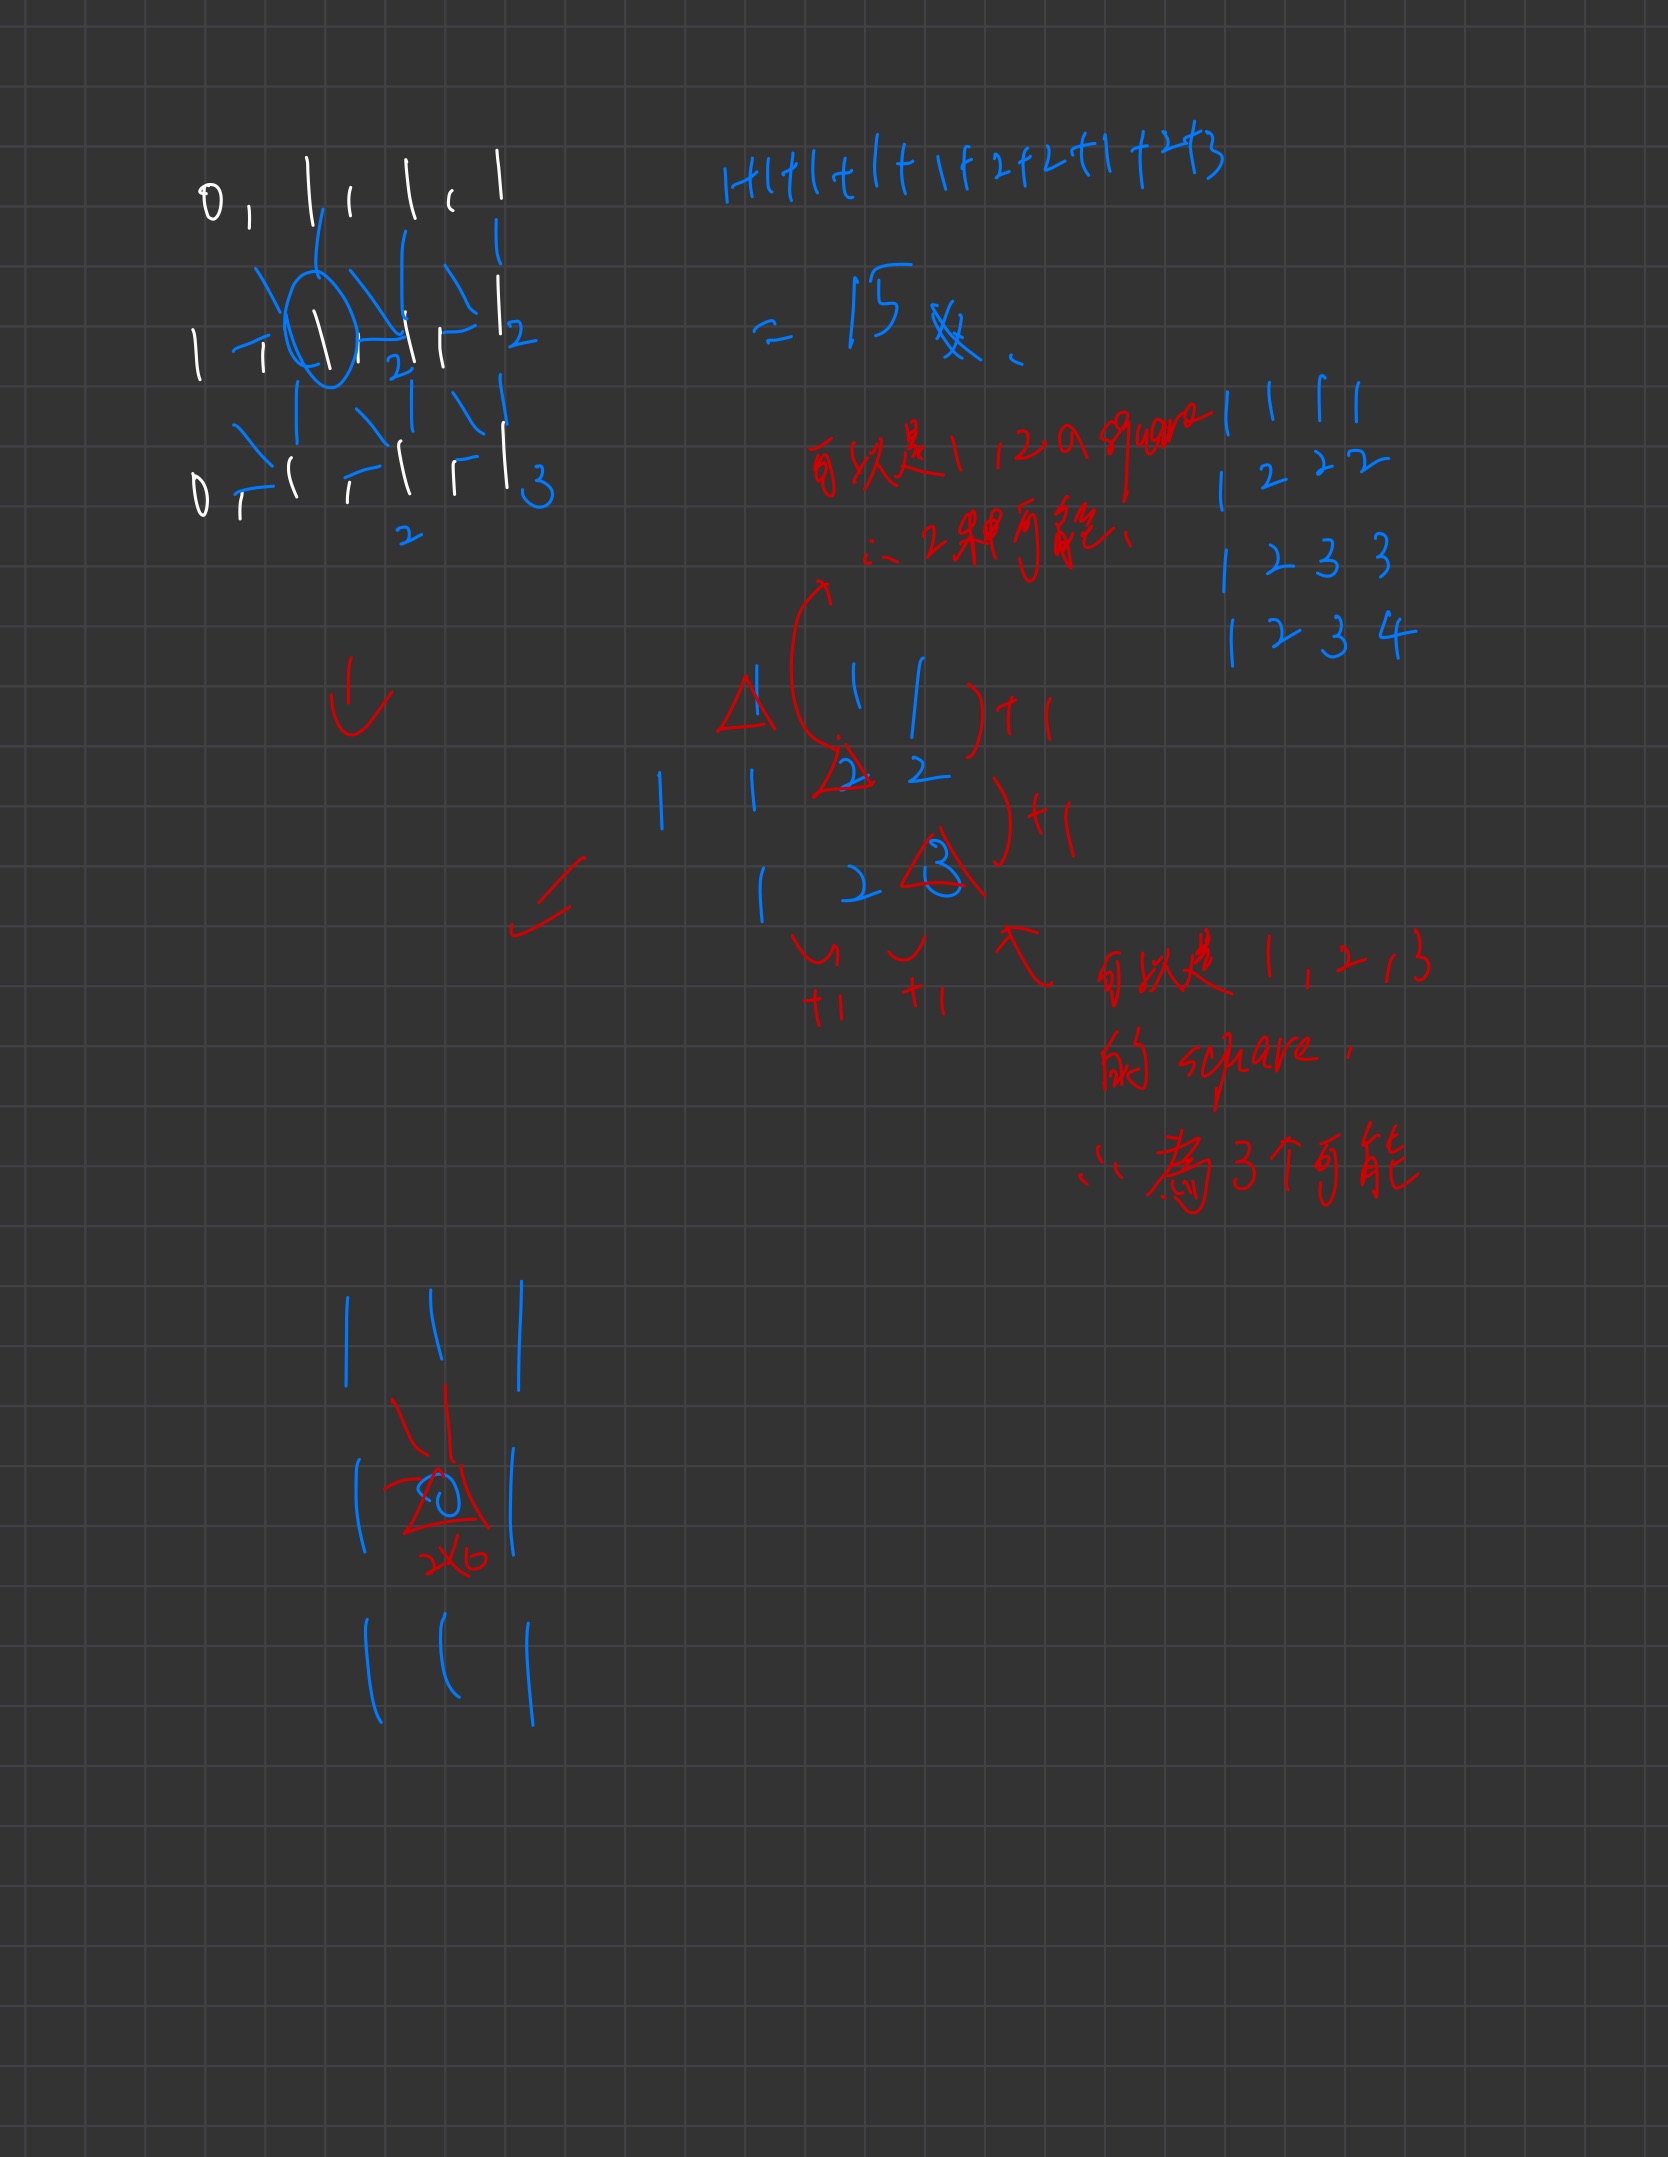 0, 1, 1, 1
1, 1, 1, 1
2 2
0, 1, 1, 1
2 3
1+1+1+1+1+2+2+1+2+3
= 15
可以是 1, 2 的 square
∴ 2种可能.
1 1 1 1
1 2 2 2
1 2 3 3
1 2 3 4
1 1 1
1 1 2 2
1 2 3
+1
+1
+1 +1
可以是 1, 2, 3
的 square.
∴ 为 3个可能
1 1 1
1 0 1
1 1 1